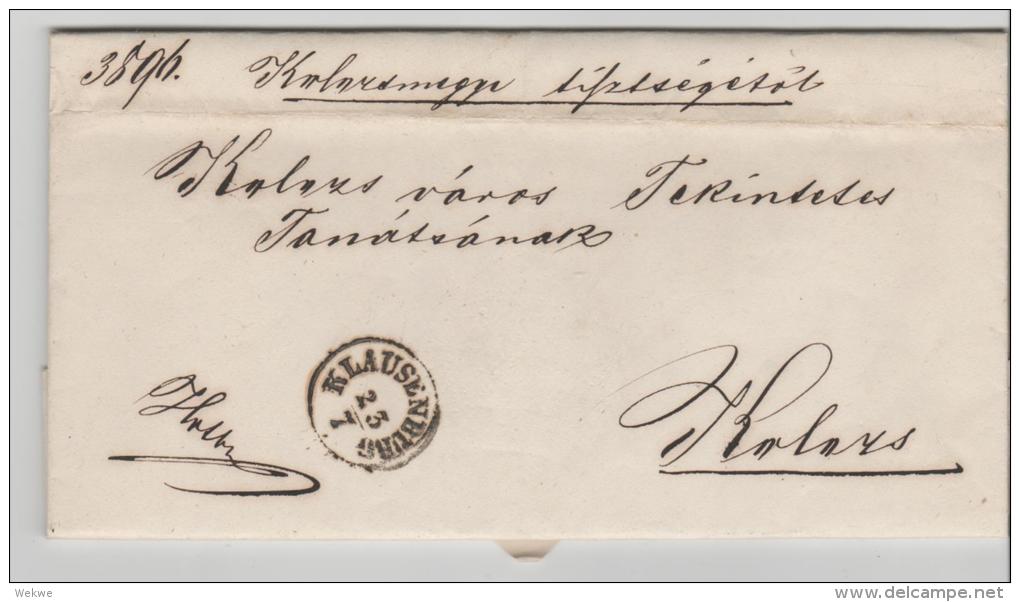 3896. Kolozsmegye tisztségétöl
Kolozs város Tekintetes
Tanátsának
KLAUSENBURG
23
7
Kolozs
Wekwe
www.delcampe.net